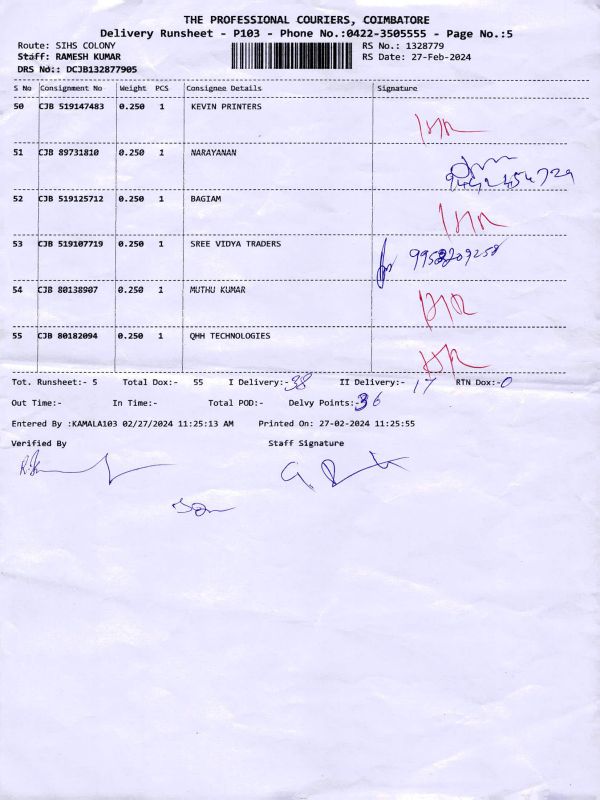 THE PROFESSIONAL COURIERS, COIMBATORE
Delivery Runsheet - P103 - Phone No.:0422-3505555 - Page No.:5
Route: SIHS COLONY RS No.: 1328779
Staff: RAMESH KUMAR RS Date: 27-Feb-2024
DRS No.: DCJB132877905
S No Consignment No Weight PCS Consignee Details Signature
50 CJB 519147483 0.250 1 KEVIN PRINTERS
51 CJB 89731810 0.250 1 NARAYANAN
52 CJB 519125712 0.250 1 BAGIAM
53 CJB 519107719 0.250 1 SREE VIDYA TRADERS
54 CJB 80138907 0.250 1 MUTHU KUMAR
55 CJB 80182094 0.250 1 QHH TECHNOLOGIES
Tot. Runsheet:- 5 Total Dox:- 55 I Delivery:- 38 II Delivery:- 17 RTN Dox:- 0
Out Time:- In Time:- Total POD:- Delvy Points:- 36
Entered By :KAMALA103 02/27/2024 11:25:13 AM Printed On: 27-02-2024 11:25:55
Verified By Staff Signature